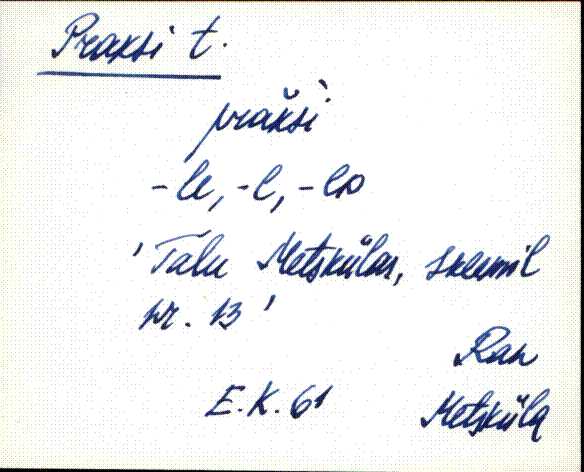 Praksi t.
prak̆si
-le, -l, -lp
'Talu Metskülas, skeemil
nr. 13'
Ran
E.K. 61 Metsküla